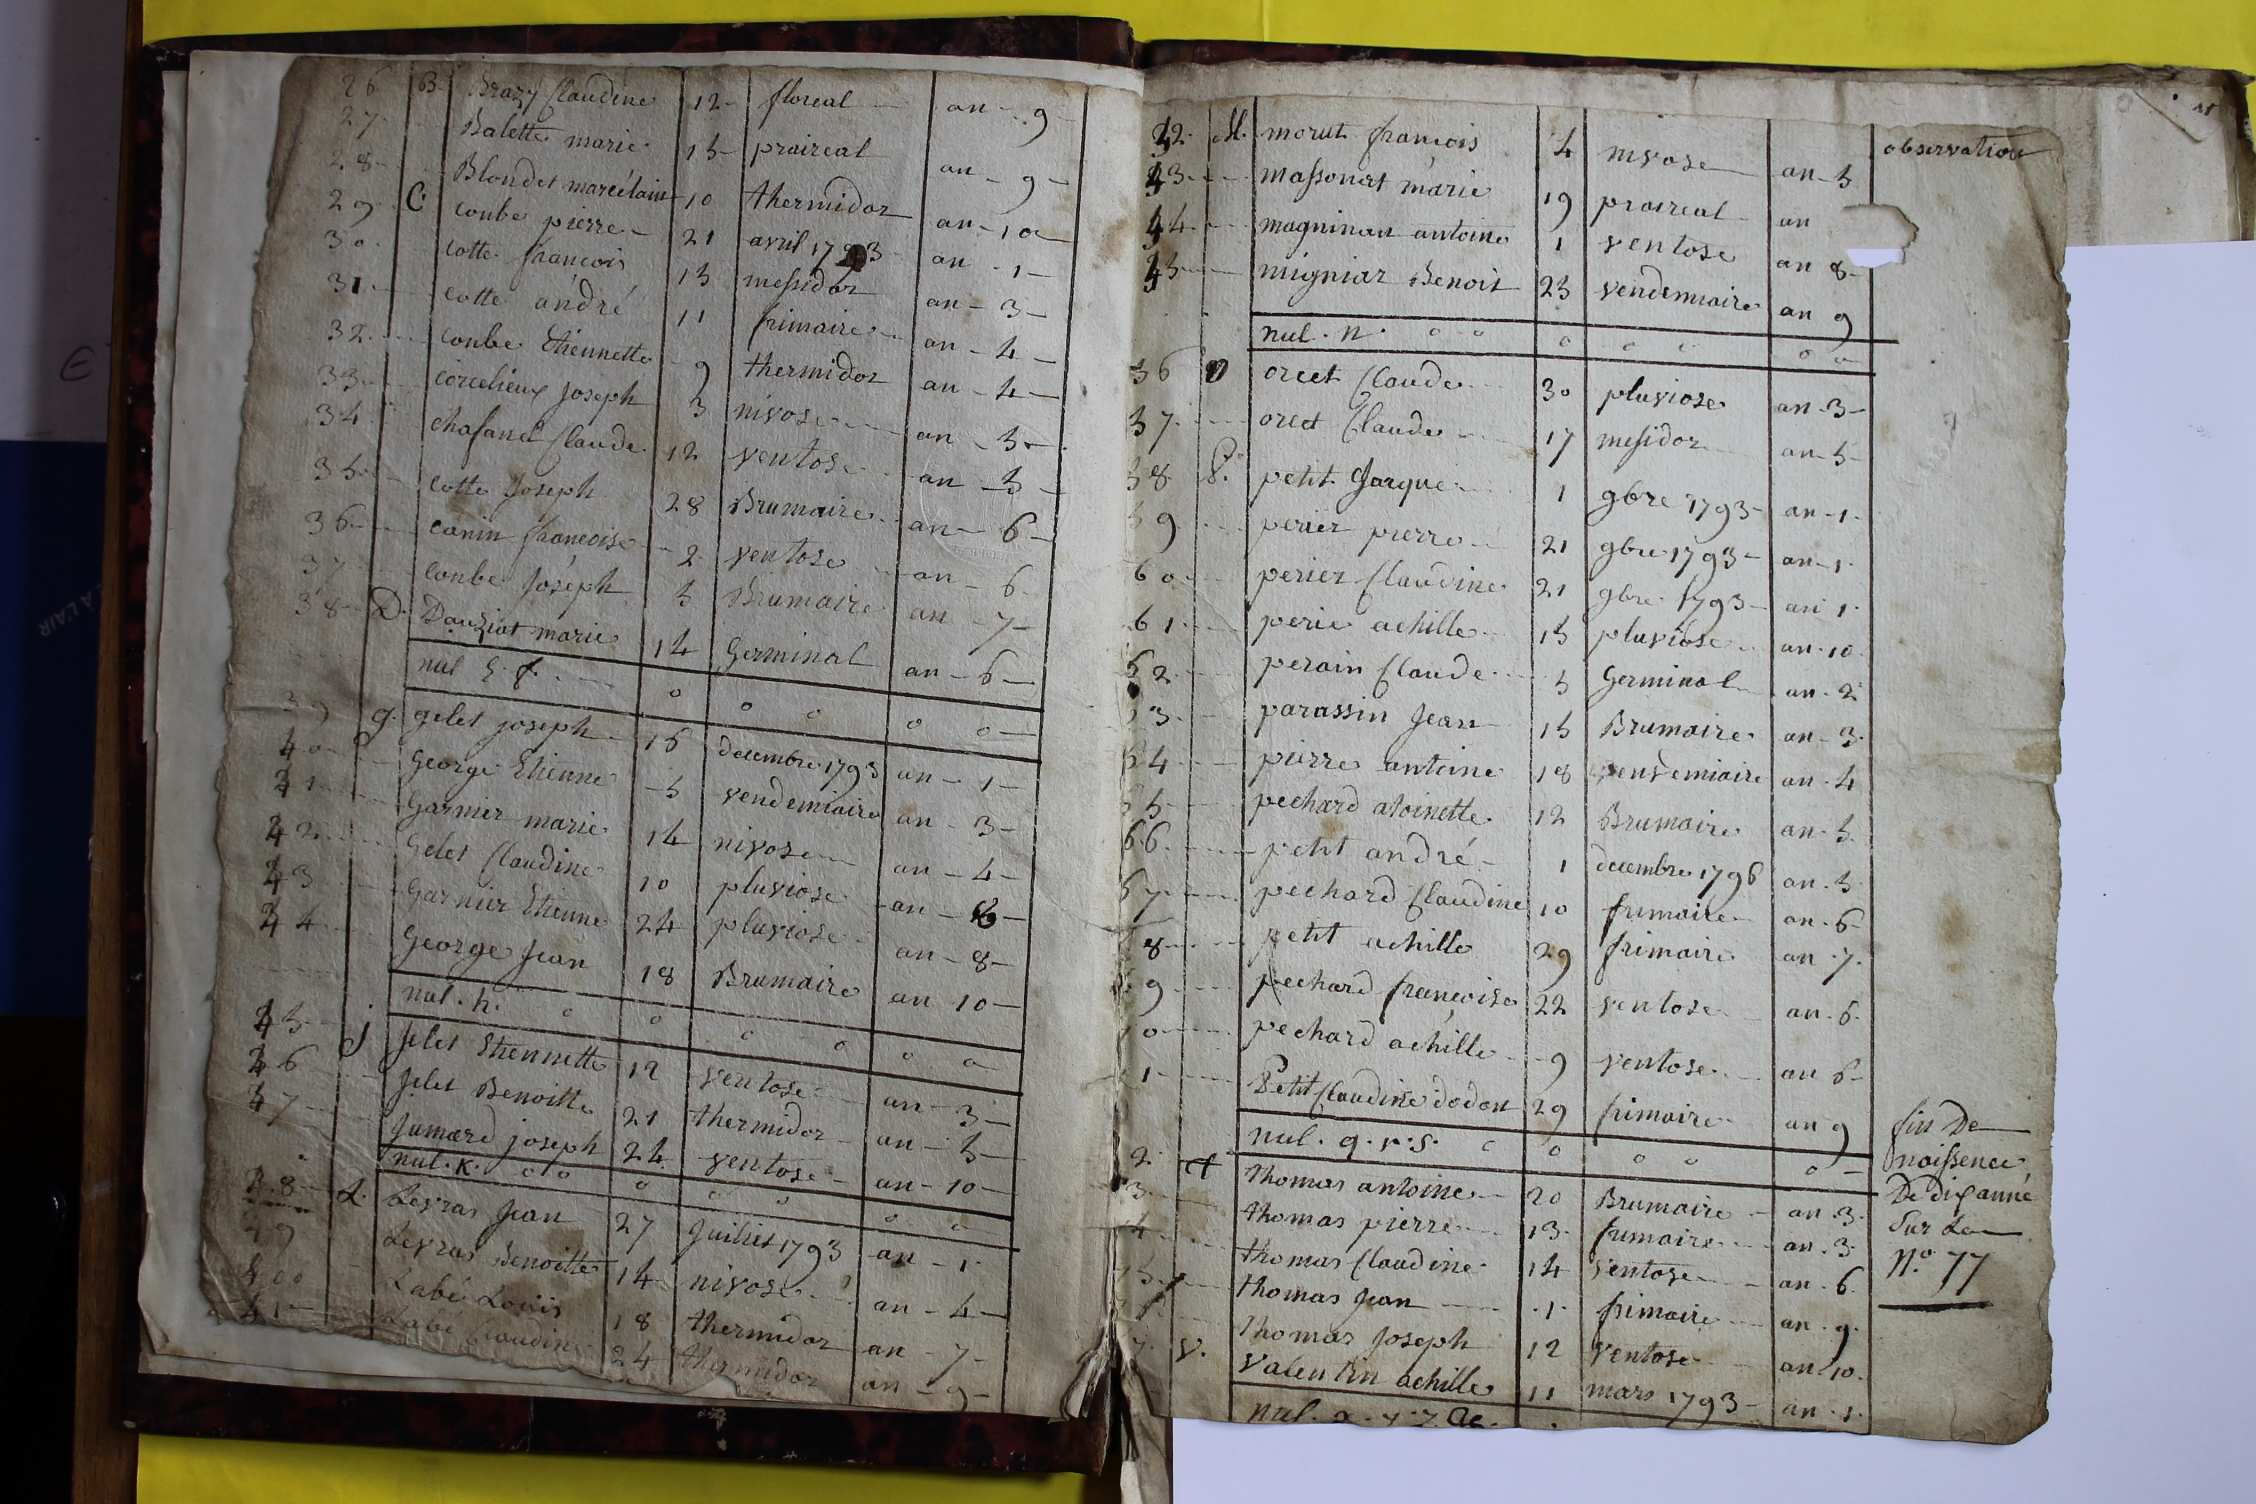 26 B. Brazy Claudine 12 floreal an 9
27 Balette marie 15 praireal an 9
28 Blondet marcélain 10 thermidor an 10
29 C. Conbe pierre 21 avril 1793 an 1
30 Cotte francois 15 messidor an 3
31 Cotte andré 11 frimaire an 4
32 Conbe Etiennette 9 thermidor an 4
33 Corcelieux joseph 5 nivose an 5
34 Chasanet Claude 12 ventose an 5
35 Cotte Joseph 28 Brumaire an 6
36 Canin francoise 2 ventose an 6
37 Conbe Joseph 5 Brumaire an 7
38 D. Dauziat marie 14 Germinal an 6
nul E. f. o o o o o
39 g. gelet joseph 16 decembre 1793 an 1
40 George Etienne 5 vendemiaire an 3
41 Garnier marie 14 nivose an 4
42 Gelet Claudine 10 pluviose an 6
43 Garnier Etienne 24 pluviose an 8
44 George Jean 18 Brumaire an 10
nul. h. o o o o o o
45 J Jelet Etiennette 12 ventose an 3
46 Jelet Benoitte 21 thermidor an 5
47 Jumard joseph 24 ventose an 10
nul. K. o o o o o o o
48 L. Levras Jean 27 Juillet 1793 an 1
49 Levras Benoitte 14 nivose an 4
Labé Louis 18 thermidor an 7
41 Labé Claudine 24 thermidor an 9
11
observation
42 M. morut francois 4 nivose an 5
43 massonat marie 19 praireal an
44 magninan antoine 1 ventose an 8
45 migniar Benoit 25 vendemiaire an 9
nul. N. o o o o o o o
56 O orcet Claude 30 pluviose an 3
57 orcet Claude 17 messidor an 5
58 P. petit Jacque 1 9bre 1793 an 1
59 perier pierre 21 9bre 1793 an 1
60 perier Claudine 21 9bre 1793 an 1
61 perie achille 15 pluviose an 10
62 perain Claude 5 Germinal an 2
3 parassin Jean 15 Brumaire an 3
64 pierre antoine 18 vendemiaire an 4
65 pechard atoinette 12 Brumaire an 5
66 petit andré 1 decembre 1796 an 5
67 pechard Claudine 10 frimaire an 6
8 petit achille 29 frimaire an 7
9 pechard francoise 22 ventose an 6
0 pechard achille 9 ventose an 6
1 Petit Claudine dodon 29 frimaire an 9
nul. q. r. s. o o o o o
2 t thomas antoine 20 Brumaire an 3
3 thomas pierre 13 frimaire an 3
4 thomas Claudine 14 ventose an 6
5 thomas Jean 1 frimaire an 9
thomas Joseph 12 ventose an 10
7 V. Valentin achille 11 mars 1793 an 1
nul. x. y. z. &c.
fin De
naissence
De dix anné
Sur Le
N.º 77